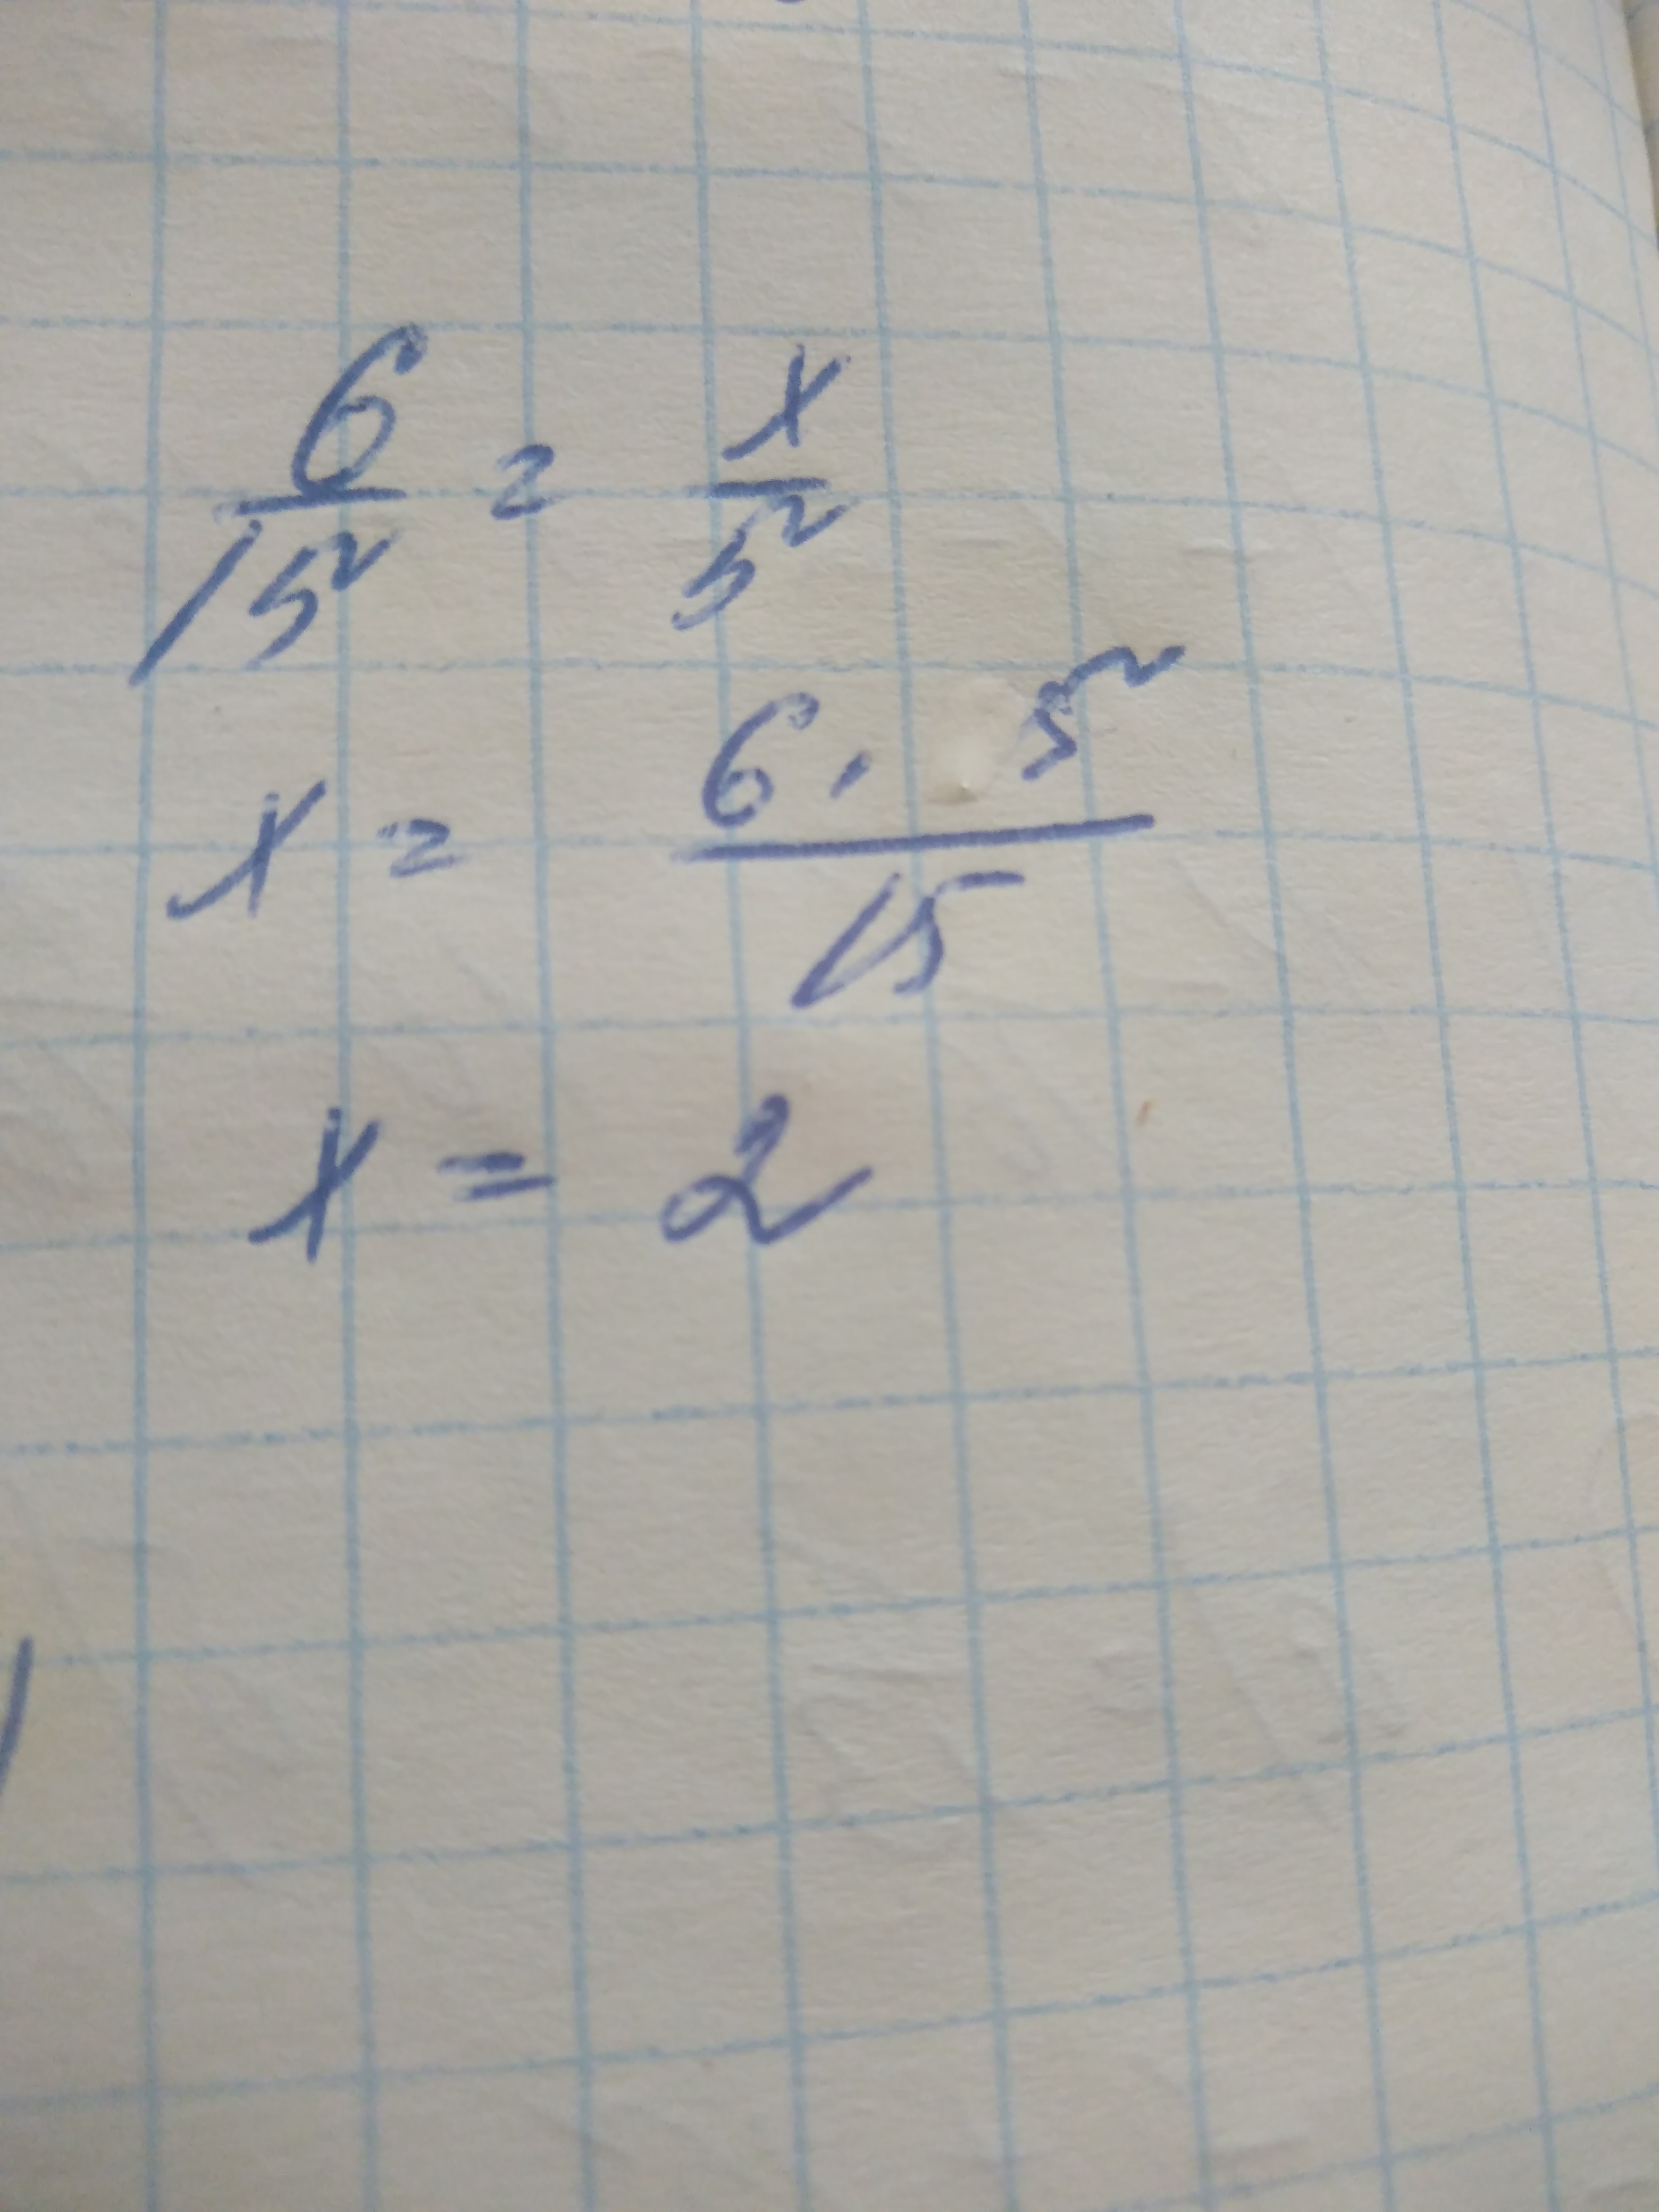 6/15 = x/5
x = 6 · 5/15
x = 2